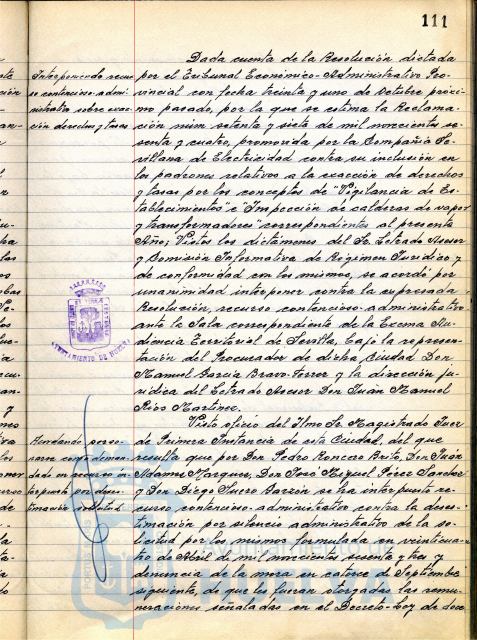 111
Dada cuenta de la Resolución dictada
Interponiendo recur-
so contencioso-admi-
nistrativo sobre exac-
ción derechos y tasas
por el Tribunal Económico-Administrativo Pro-
vincial con fecha treinta y uno de Octubre próxi-
mo pasado, por la que se estima la Reclama-
ción núm setenta y siete de mil novecientos se-
senta y cuatro, promovida por la Compañía Se-
villana de Electricidad contra su inclusión en
los padrones relativos a la exacción de derechos
y tasas por los conceptos de "Vigilancia de Es-
tablecimientos" e "Inspección de calderas de vapor
y transformadores" correspondientes al presente
Año; Vistos los dictámenes del Sr. Letrado Asesor
y Comisión Informativa de Régimen Jurídico y
de conformidad con los mismos, se acordó por
unanimidad interponer contra la expresada
Resolución, recurso contencioso-administrativo
ante la Sala correspondiente de la Excma Au-
diencia Territorial de Sevilla, bajo la represen-
tación del Procurador de dicha Ciudad Don
Manuel García Bravo-Ferrer y la dirección ju-
rídica del Letrado Asesor Don Juán Manuel
Ríos Martinez.
Visto oficio del Ilmo Sr. Magistrado Juez
Mandando perso-
narse
dado en recurso in-
terpuesto por deses-
timación solicitud.
de Primera Instancia de esta Ciudad, del que
resulta que por Don Pedro Roncero Brito, Don Juán
Adames Marquez, Don José Miguel Pérez Sanchez
y Don Diego Suero Barzón se ha interpuesto re-
curso contencioso-administrativo contra la deses-
timación por silencio administrativo de la so-
licitud por los mismos formulada en veinticua-
tro de Abril de mil novecientos sesenta y tres y
denuncia de la mora en catorce de Septiembre
siguiente, de que les fueran otorgadas las remu-
neraciones señaladas en el Decreto-Ley de doce
AYUNTAMIENTO DE HUELVA